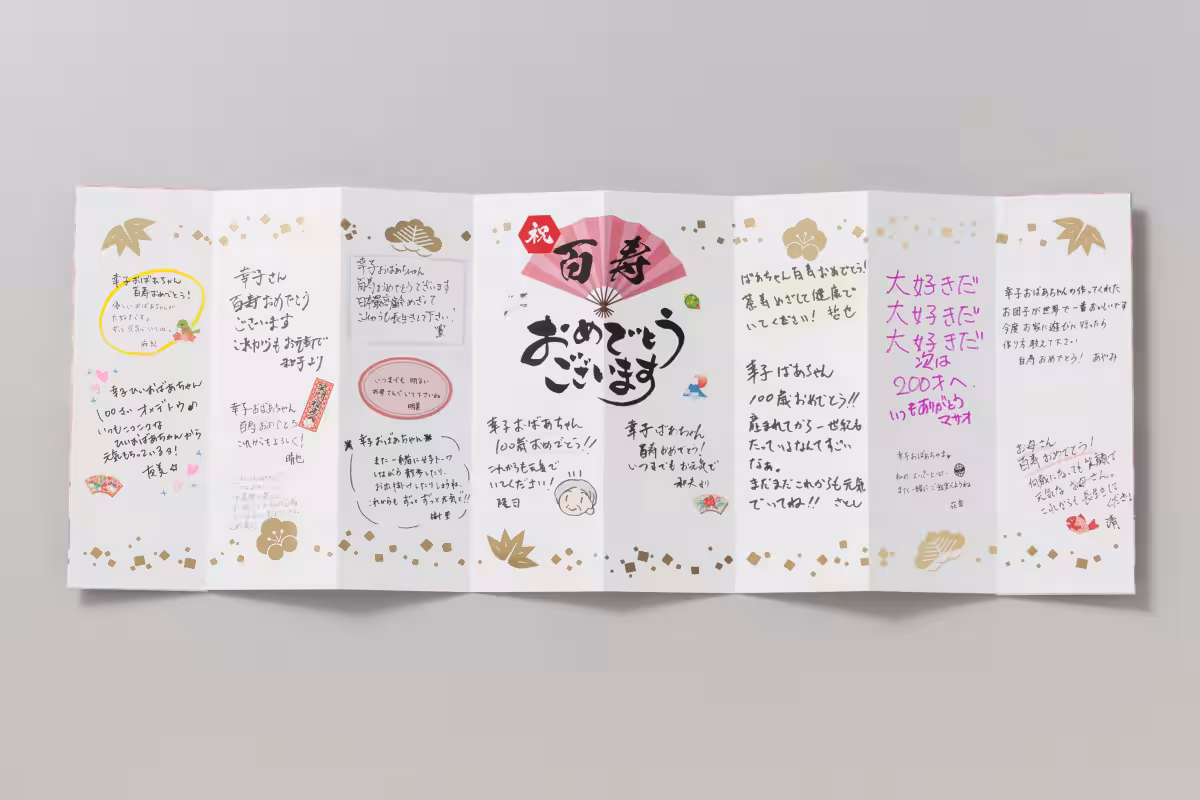 幸子おばあちゃん
百寿おめでとう!
優しいおばあちゃんが
大好きです。
幸子ひいおばあちゃん
100さい オメデトウ♪
いつもニコニコな
ひいおばあちゃんから
元気もらっているヨ!
友美☆
幸子さん
百寿おめでとう
ございます
これからもお元気で
幸子おばあちゃん
百寿おめでとう
これからもよろしく!
晴也
幸子おばあちゃん
百寿おめでとうございます
日本最高齢めざして
これからも長生きして下さい!
いつまでも 明るい
お母さんでいて下さいね
明美
幸子おばあちゃん
また一緒に女子トーク
しながら散歩したり、
お出掛けしたりしようね。
これからも ずっとずっと元気で!!
樹里
祝
百寿
おめでとう
ございます
幸子おばあちゃん
100歳おめでとう!!
これからも元気で
いてください!
幸子ばあちゃん
百寿おめでとう!
いつまでもお元気で
和夫より
ばあちゃん百寿おめでとう!
茶寿めざして健康で
いてください! 哲也
幸子ばあちゃん
100歳おめでとう!!
産まれてから一世紀も
たっているなんてすごい
なぁ。
まだまだこれからも元気
でいてね!! さとし
大好きだ
大好きだ
大好きだ
次は
200才へ.
いつもありがとう
マサオ
幸子おばあちゃん
また一緒にご飯食べようね
幸子おばあちゃんの作ってくれた
お団子が世界で一番おいしいです
今度お家に遊びに行ったら
作り方教えて下さい
百寿おめでとう! あやみ
お母さん
百寿おめでとう!
何歳になっても笑顔で
元気なお母さん。
これからも長生きして
ください
清